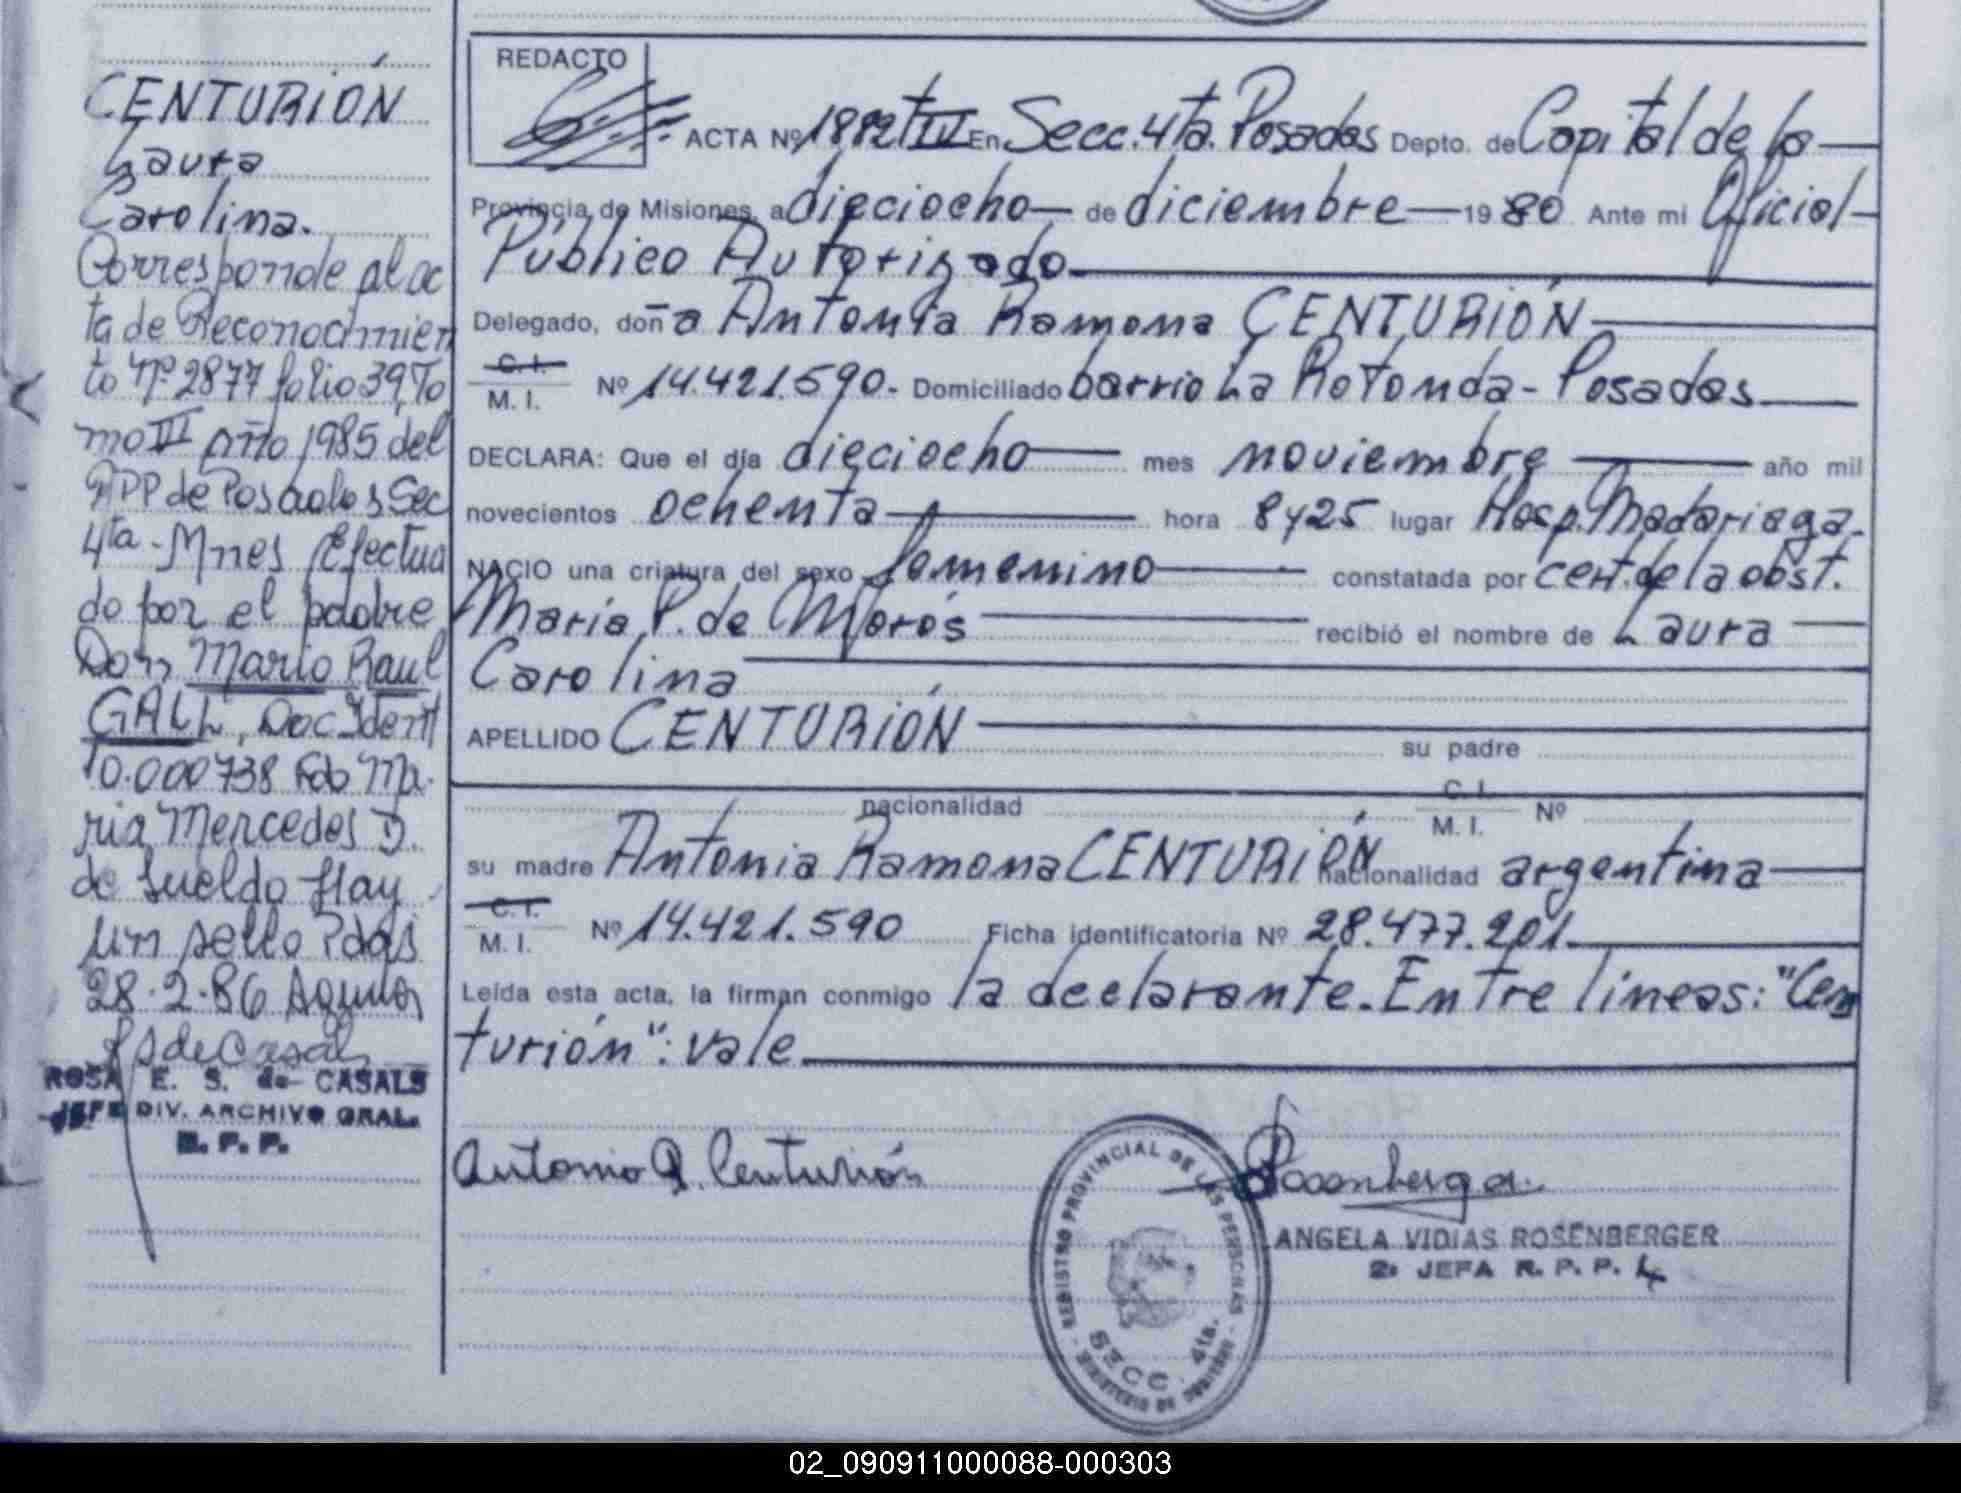 CENTURIÓN
Laura
Carolina.
Corresponde al ac
ta de Reconocimien
to Nº 2877 folio 39, To
mo III Año 1985 del
RPP de Posadas Sec
4ta - Mnes Efectua
do por el padre
Don Mario Raul
GALL, Doc Ident
10.000738 Fdo Ma-
ria Mercedes D.
de Sueldo Hay
un sello Pdas
28.2.86 Aquino
RSdeCasals
ROSA E. S. de CASALS
JEFE DIV. ARCHIVO GRAL.
R. P. P.
REDACTO
ACTA Nº 1882 tIV En Secc. 4ta. Posadas Depto. de Capital de la
Provincia de Misiones, a dieciocho de diciembre 19 80 Ante mi Oficial
Público Autorizado
Delegado, doña Antonia Ramona CENTURIÓN
C. I.
M. I. Nº 14.421.590.- Domiciliado barrio La Rotonda - Posadas
DECLARA: Que el día dieciocho mes noviembre año mil
novecientos ochenta hora 8y25 lugar Hosp. Madariaga.
NACIO una criatura del sexo femenino constatada por cert. de la obst.
María P. de Morós recibió el nombre de Laura
Carolina
APELLIDO CENTURIÓN su padre
nacionalidad C. I.
M. I. Nº
su madre Antonia Ramona CENTURIÓN nacionalidad argentina
C. I.
M. I. Nº 14.421.590 Ficha identificatoria Nº 28.477.201.
Leída esta acta, la firman conmigo la declarante. Entre lineas: "Cen
turión": vale
Antonia R. Centurión
Rosenberger
ANGELA VIDIAS ROSENBERGER
2: JEFA R. P. P. 4
REGISTRO PROVINCIAL DE LAS PERSONAS
SECC. 4ta.
- MINISTERIO DE GOBIERNO -
02_090911000088-000303